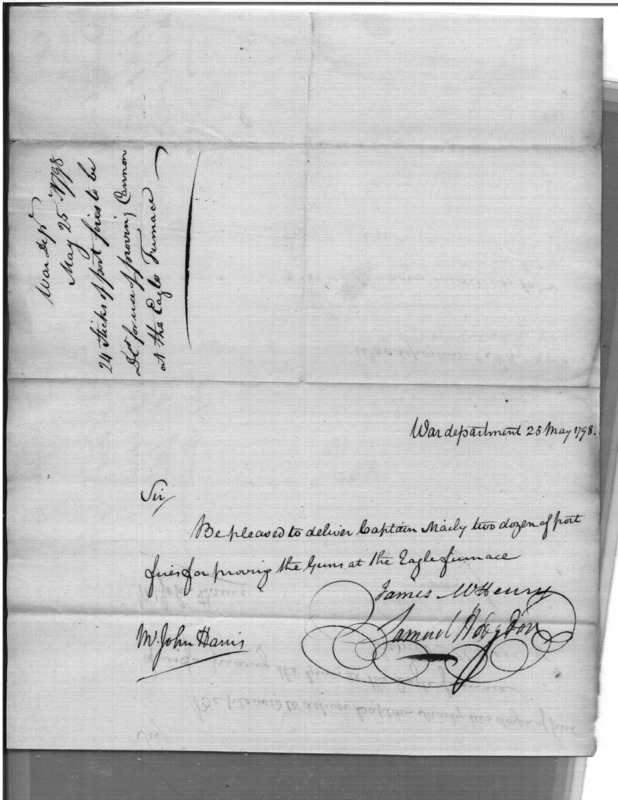 War Dept
May 25 1798
24 Sticks of port fires to be
Dd for use of proving Cannon
at the Eagle Furnace
War department 25 May 1798.
Sir,
Be pleased to deliver Captain two dozen of port
fires for proving the Guns at the Eagle furnace
James McHenry
Samuel Hodgdon
Mr. John Harris